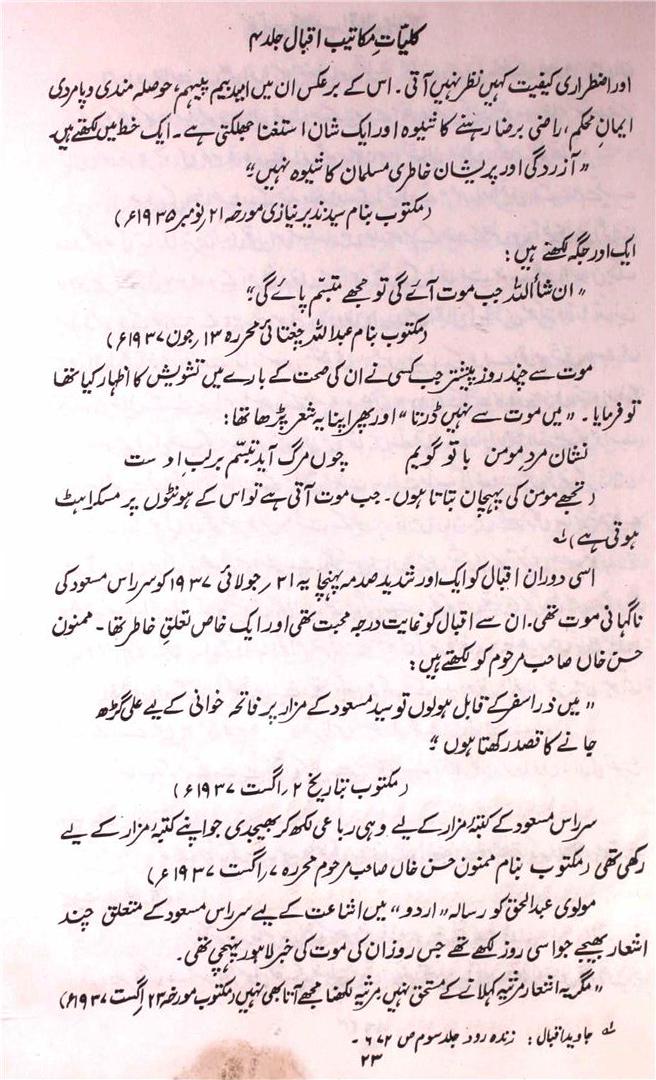 کلیّاتِ مکاتیب اقبال جلد ۴
اور اضطراری کیفیت کہیں نظر نہیں آتی ۔ اس کے برعکس ان میں امید پیم پیہم، حوصلہ مندی و پامردی
ایمانِ محکم، راضی برضا رہنے کا شیوہ اور ایک شان استغنا جھلکتی ہے ۔ ایک خط میں لکھتے ہیں۔
"آزردگی اور پریشان خاطری مسلمان کا شیوہ نہیں"
(مکتوب بنام سید نذیر نیازی مورخہ ۲۱ نومبر ۱۹۳۵ء)
ایک اور جگہ لکھتے ہیں :
"ان شأاللہ جب موت آئے گی تو مجھے متبسم پائے گی"
(مکتوب بنام عبداللہ چغتائی محررہ ۱۳ جون ۱۹۳۷ء)
موت سے چند روز پیشتر جب کسی نے ان کی صحت کے بارے میں تشویش کا اظہار کیا تھا
تو فرمایا ۔ "میں موت سے نہیں ڈرتا" اور پھر اپنا یہ شعر پڑھا تھا :
نشان مردِ مومن با تو گویم چوں مرگ آید تبسّم بر لبِ اوست
(تجھے مومن کی پہچان بتاتا ہوں ۔ جب موت آتی ہے تو اس کے ہونٹوں پر مسکراہٹ
ہوتی ہے) لہ
اسی دوران اقبال کو ایک اور شدید صدمہ پہنچا یہ ۲۱ جولائی ۱۹۳۷ کو سر راس مسعود کی
ناگہانی موت تھی ۔ ان سے اقبال کو غایت درجہ محبت تھی اور ایک خاص تعلقِ خاطر تھا ۔ ممنون
حسن خاں صاحب مرحوم کو لکھتے ہیں :
"میں ذرا سفر کے قابل ہو لوں تو سید مسعود کے مزار پر فاتحہ خوانی کے لیے علی گڑھ
جانے کا قصد رکھتا ہوں"
(مکتوب بتاریخ ۲ اگست ۱۹۳۷ء)
سر راس مسعود کے کتبۂ مزار کے لیے وہی رباعی لکھ کر بھیجدی جو اپنے کتبۂ مزار کے لیے
رکھی تھی (مکتوب بنام ممنون حسن خاں صاحب مرحوم محررہ ۷ اگست ۱۹۳۷ء)
مولوی عبدالحق کو رسالہ "اردو" میں اشاعت کے لیے سر راس مسعود کے متعلق چند
اشعار بھیجے جو اسی روز لکھے تھے جس روز ان کی موت کی خبر لاہور پہنچی تھی ۔
"مگر یہ اشعار مرثیہ کہلانے کے مستحق نہیں مرثیہ لکھنا مجھے آتا بھی نہیں (مکتوب مورخہ ۲۳ اگست ۱۹۳۷ء)
لہ جاوید اقبال : زندہ رود جلد سوم ص ۶۷۲ ۔
۲۳